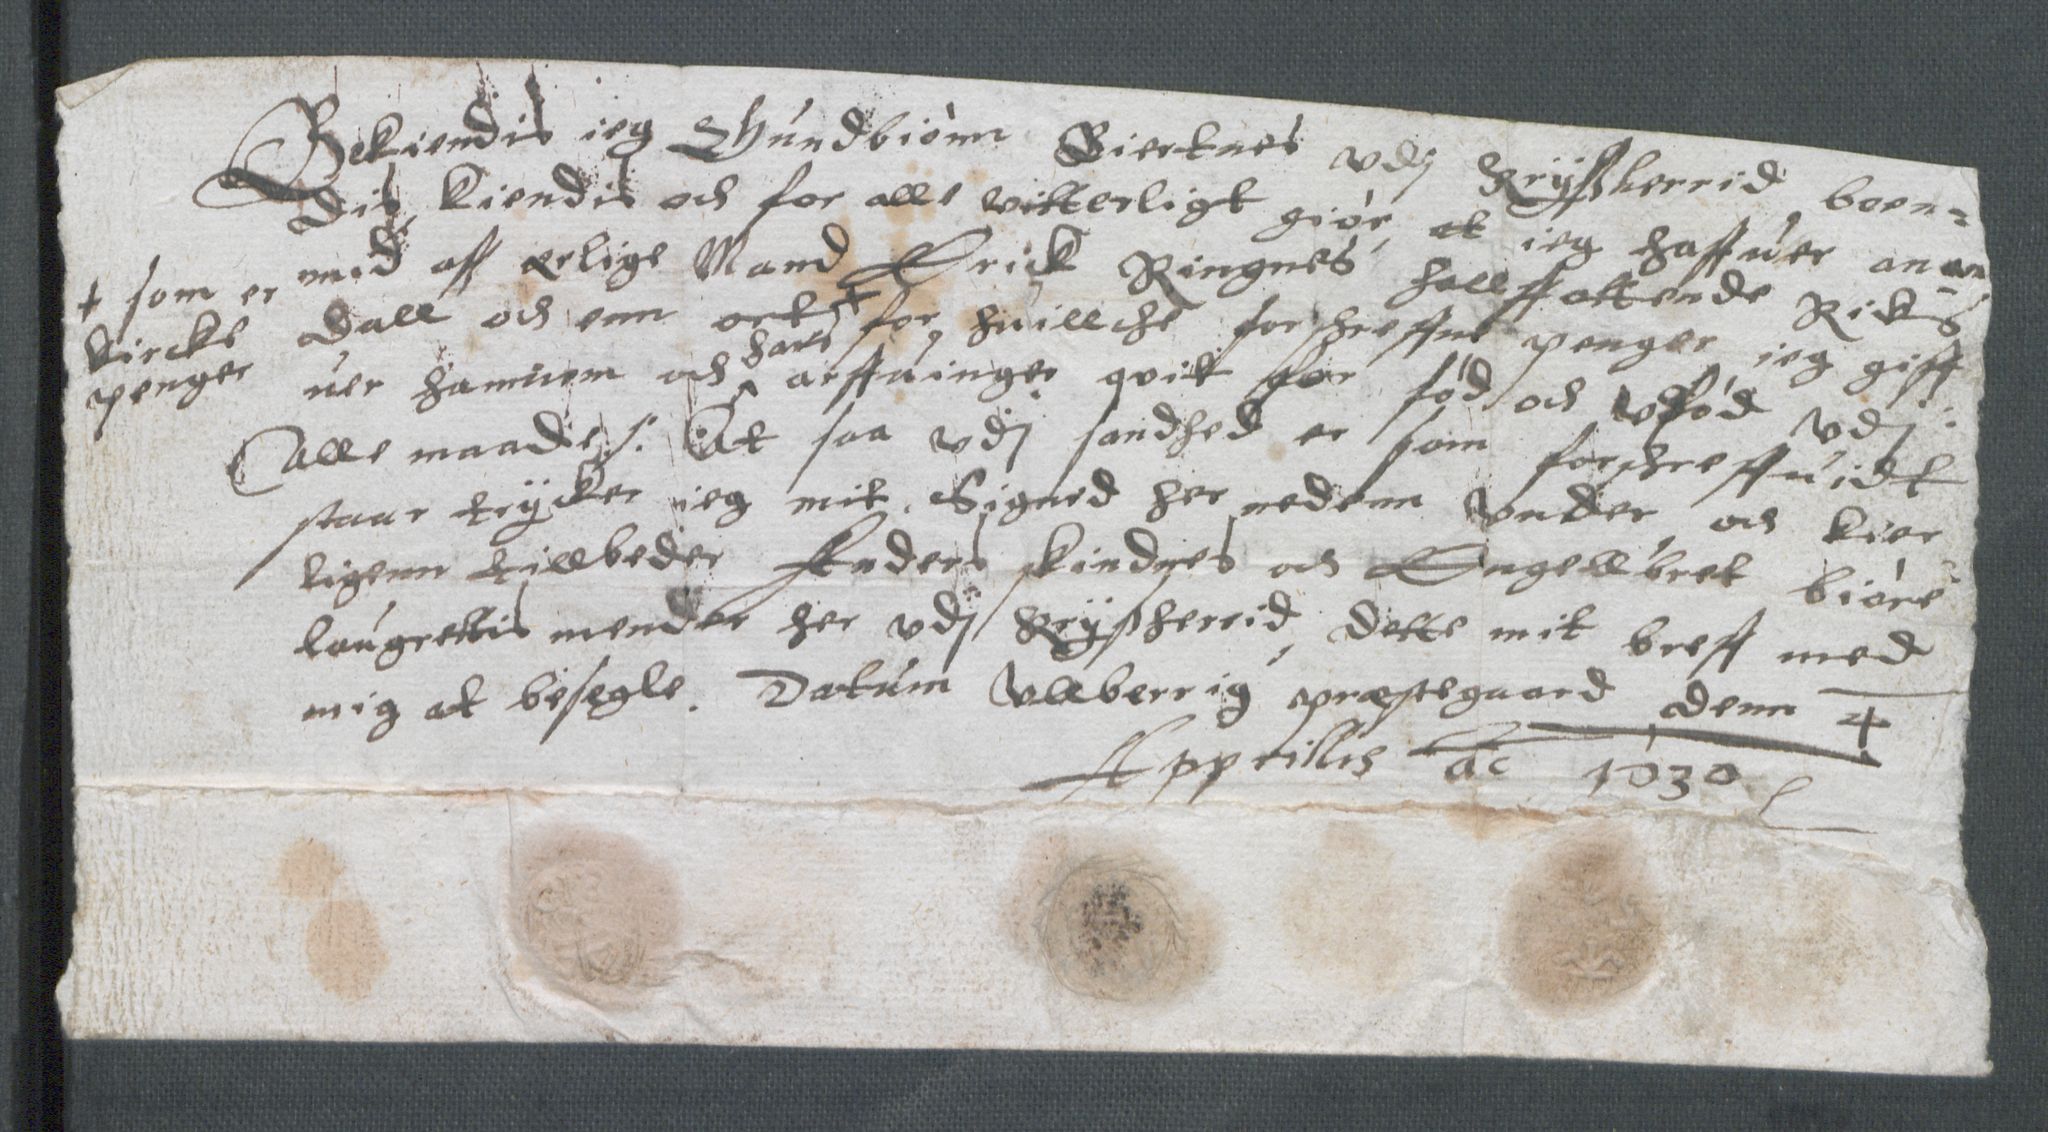 Bekiendis ieg Gundbiörn Bierknes vdj Krÿsherrid, boen=
dis, kiendis och for alle vitterligt giör, at ieg haffuer anam
mid aff erlige Mand Erick Ringnes, hallffottende Ricks
dall och enn ort + for huillche forschreffne penger ieg giff
uer hannem och hans arffuinger quit for fød och vfød vdj
alle maade. At saa vdj sandhed er som forschreffuidt
staar trÿcker ieg mit Signed her nedenn vnder, och kier
ligenn tillbeder Anders skindnes och Engellbret biöre
laugrettis mender her vdj Krÿsherrid, dette mit breff med
mig at besegle. Datum Vllberrig præstegaard denn 4
Apprillis ao 1630
+ som er
kircke
penger